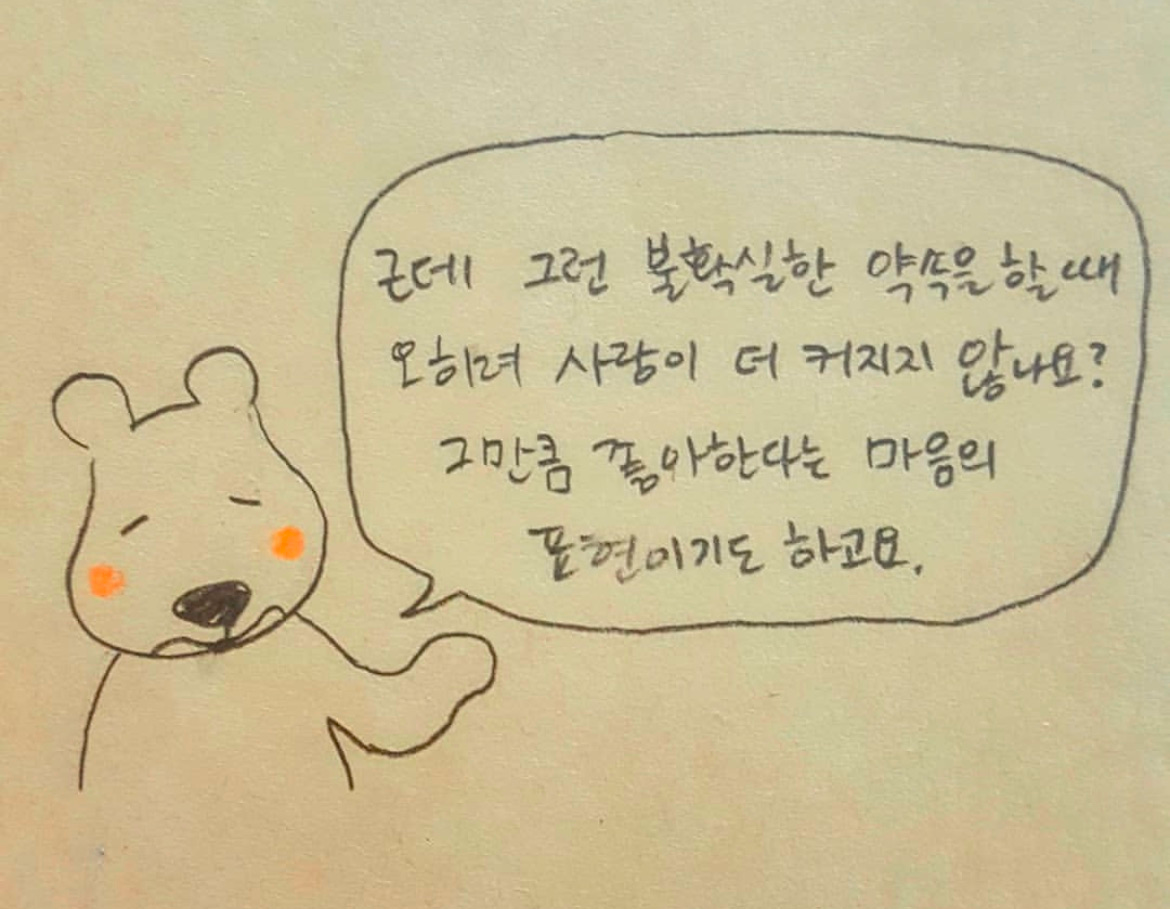 근데 그런 불확실한 약속을 할 때
오히려 사랑이 더 커지지 않나요?
그만큼 좋아한다는 마음의
표현이기도 하고요.